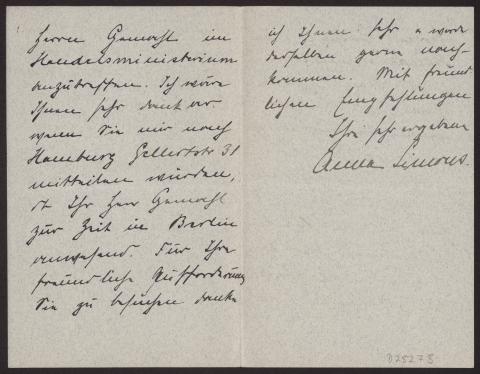 Herrn Gemahl im
Handelsministerium
anzutreffen. Ich wäre
Ihnen sehr dankbar
wenn Sie mir nach
Hamburg Gellertstr 31
mitteilen würden,
ob Ihr Herr Gemahl
zur Zeit in Berlin
anwesend. Für Ihre
freundliche Aufforderung
Sie zu besuchen danke
ich Ihnen sehr u werde
derselben gerne nach-
kommen. Mit freund
lichen Empfehlungen
Ihre sehr ergebene
Anna Simons.